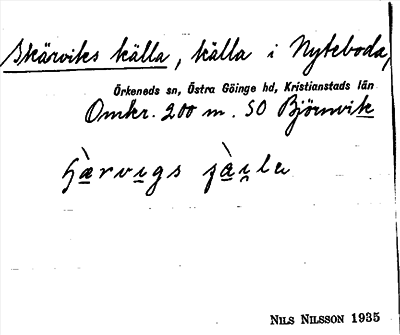 Skärviks källa, källa i Nyteboda,
Örkeneds sn, Östra Göinge hd, Kristianstads län
Omkr. 200 m. SO Björnvik
NILS NILSSON 1935